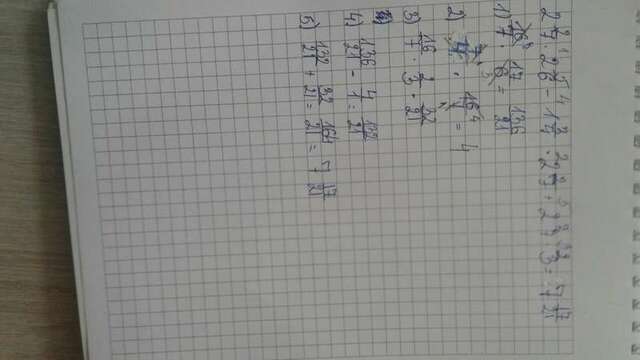 2 2/7 · 2 5/6 - 1 3/4 · 2 2/7 + 2 2/7 · 2/3 = 7 17/21
1) 16/7 · 17/6 = 136/21
2) 7/4 · 16/7 = 4
3) 16/7 · 2/3 = 32/21
4) 136/21 - 4/1 = 132/21
5) 132/21 + 32/21 = 164/21 = 7 17/21